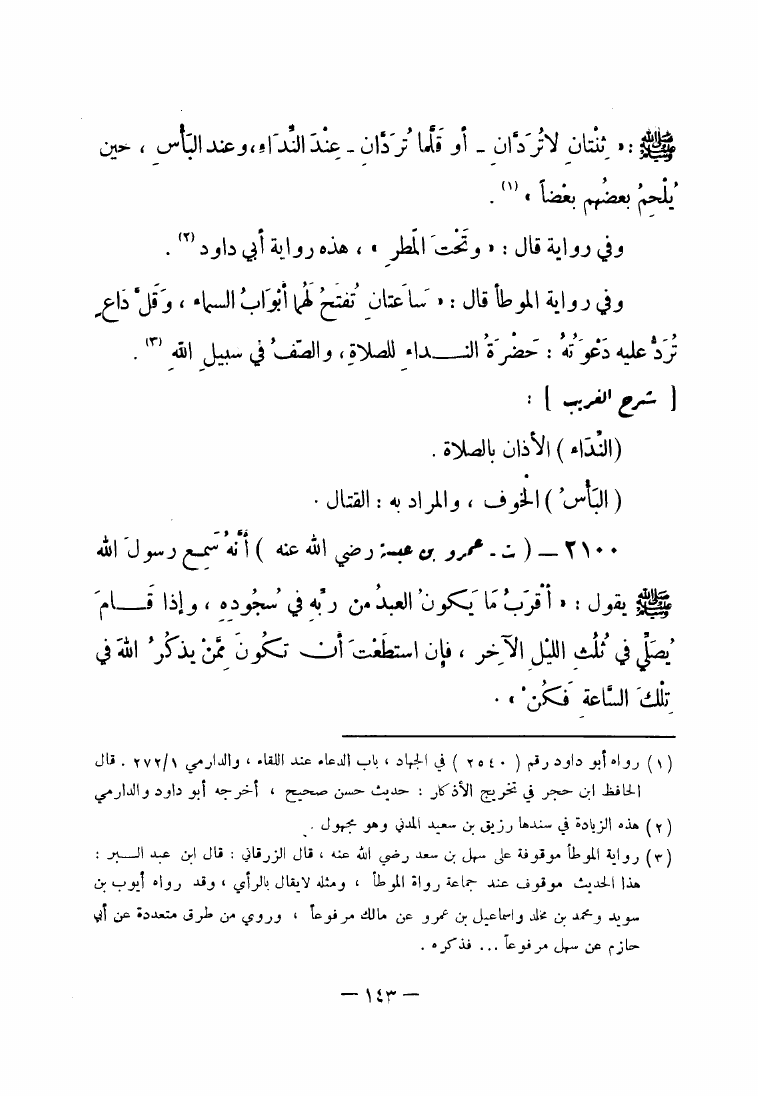 ﷺ : « ثِنْتَانِ لَاتُرَدَّانِ - أو قَلَّمَا تُرَدَّانِ - عِنْدَ النِّدَاءِ، وعند البَأْسِ ، حين
يُلْحِمُ بعضُهم بعْضاً » (١) .
وفي رواية قال : « وتَحْتَ المَطرِ » ، هذه رواية أبي داود (٢) .
وفي رواية الموطأ قال : « سَاعَتَانِ تُفتَحُ لَهُما أَبْوَابُ السماءِ ، وَقَلَّ دَاعٍ
تُرَدُّ عليه دَعْوَتُهُ : حَضْرَةُ النـداءِ للصلاةِ ، والصّفُّ في سبيلِ اللّهِ (٣) .
[ شرح الغريب ] :
( النِّدَاء ) الأذان بالصلاة .
( البَأْسُ ) الخوف ، والمراد به : القتال .
٢١٠٠ — ( ت - عمرو بن عبسة رضي الله عنه ) أَنَّهُ سَمِع رسولَ الله
ﷺ يقول : « أَقرَبُ مَا يَكونُ العبدُ من ربِّه في سُجُودِه ، وإذا قَـامَ
يُصَلِّي في ثُلُثِ الليْلِ الآخِرِ ، فإن استطَعْتَ أن تكُونَ مِمَّنْ يذكُرُ اللهَ في
تِلْكَ السَّاعةِ فَكُنْ » .
(١) رواه أبو داود رقم ( ٢٥٤٠ ) في الجهاد ، باب الدعاء عند اللقاء ، والدارمي ٢٧٢/١ . قال
الحافظ ابن حجر في تخريج الأذكار : حديث حسن صحيح ، أخرجه أبو داود والدارمي
(٢) هذه الزيادة في سندها رزيق بن سعيد المدني وهو مجهول .
(٣) رواية الموطأ موقوفة على سهل بن سعد رضي الله عنه ، قال الزرقاني : قال ابن عبد الـبر :
هذا الحديث موقوف عند جماعة رواة الموطأ ، ومثله لايقال بالرأي ، وقد رواه أيوب بن
سويد ومحمد بن مخلد واسماعيل بن عمرو عن مالك مرفوعاً ، وروي من طرق متعددة عن أبي
حازم عن سهل مرفوعاً ... فذكره .
— ١٤٣ —